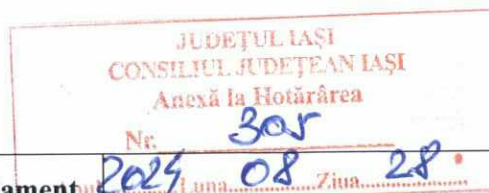 JUDEȚUL IAȘI
CONSILIUL JUDEȚEAN IAȘI
Anexă la Hotărârea
Nr. 305
ament 2024 Luna 08 Ziua 28